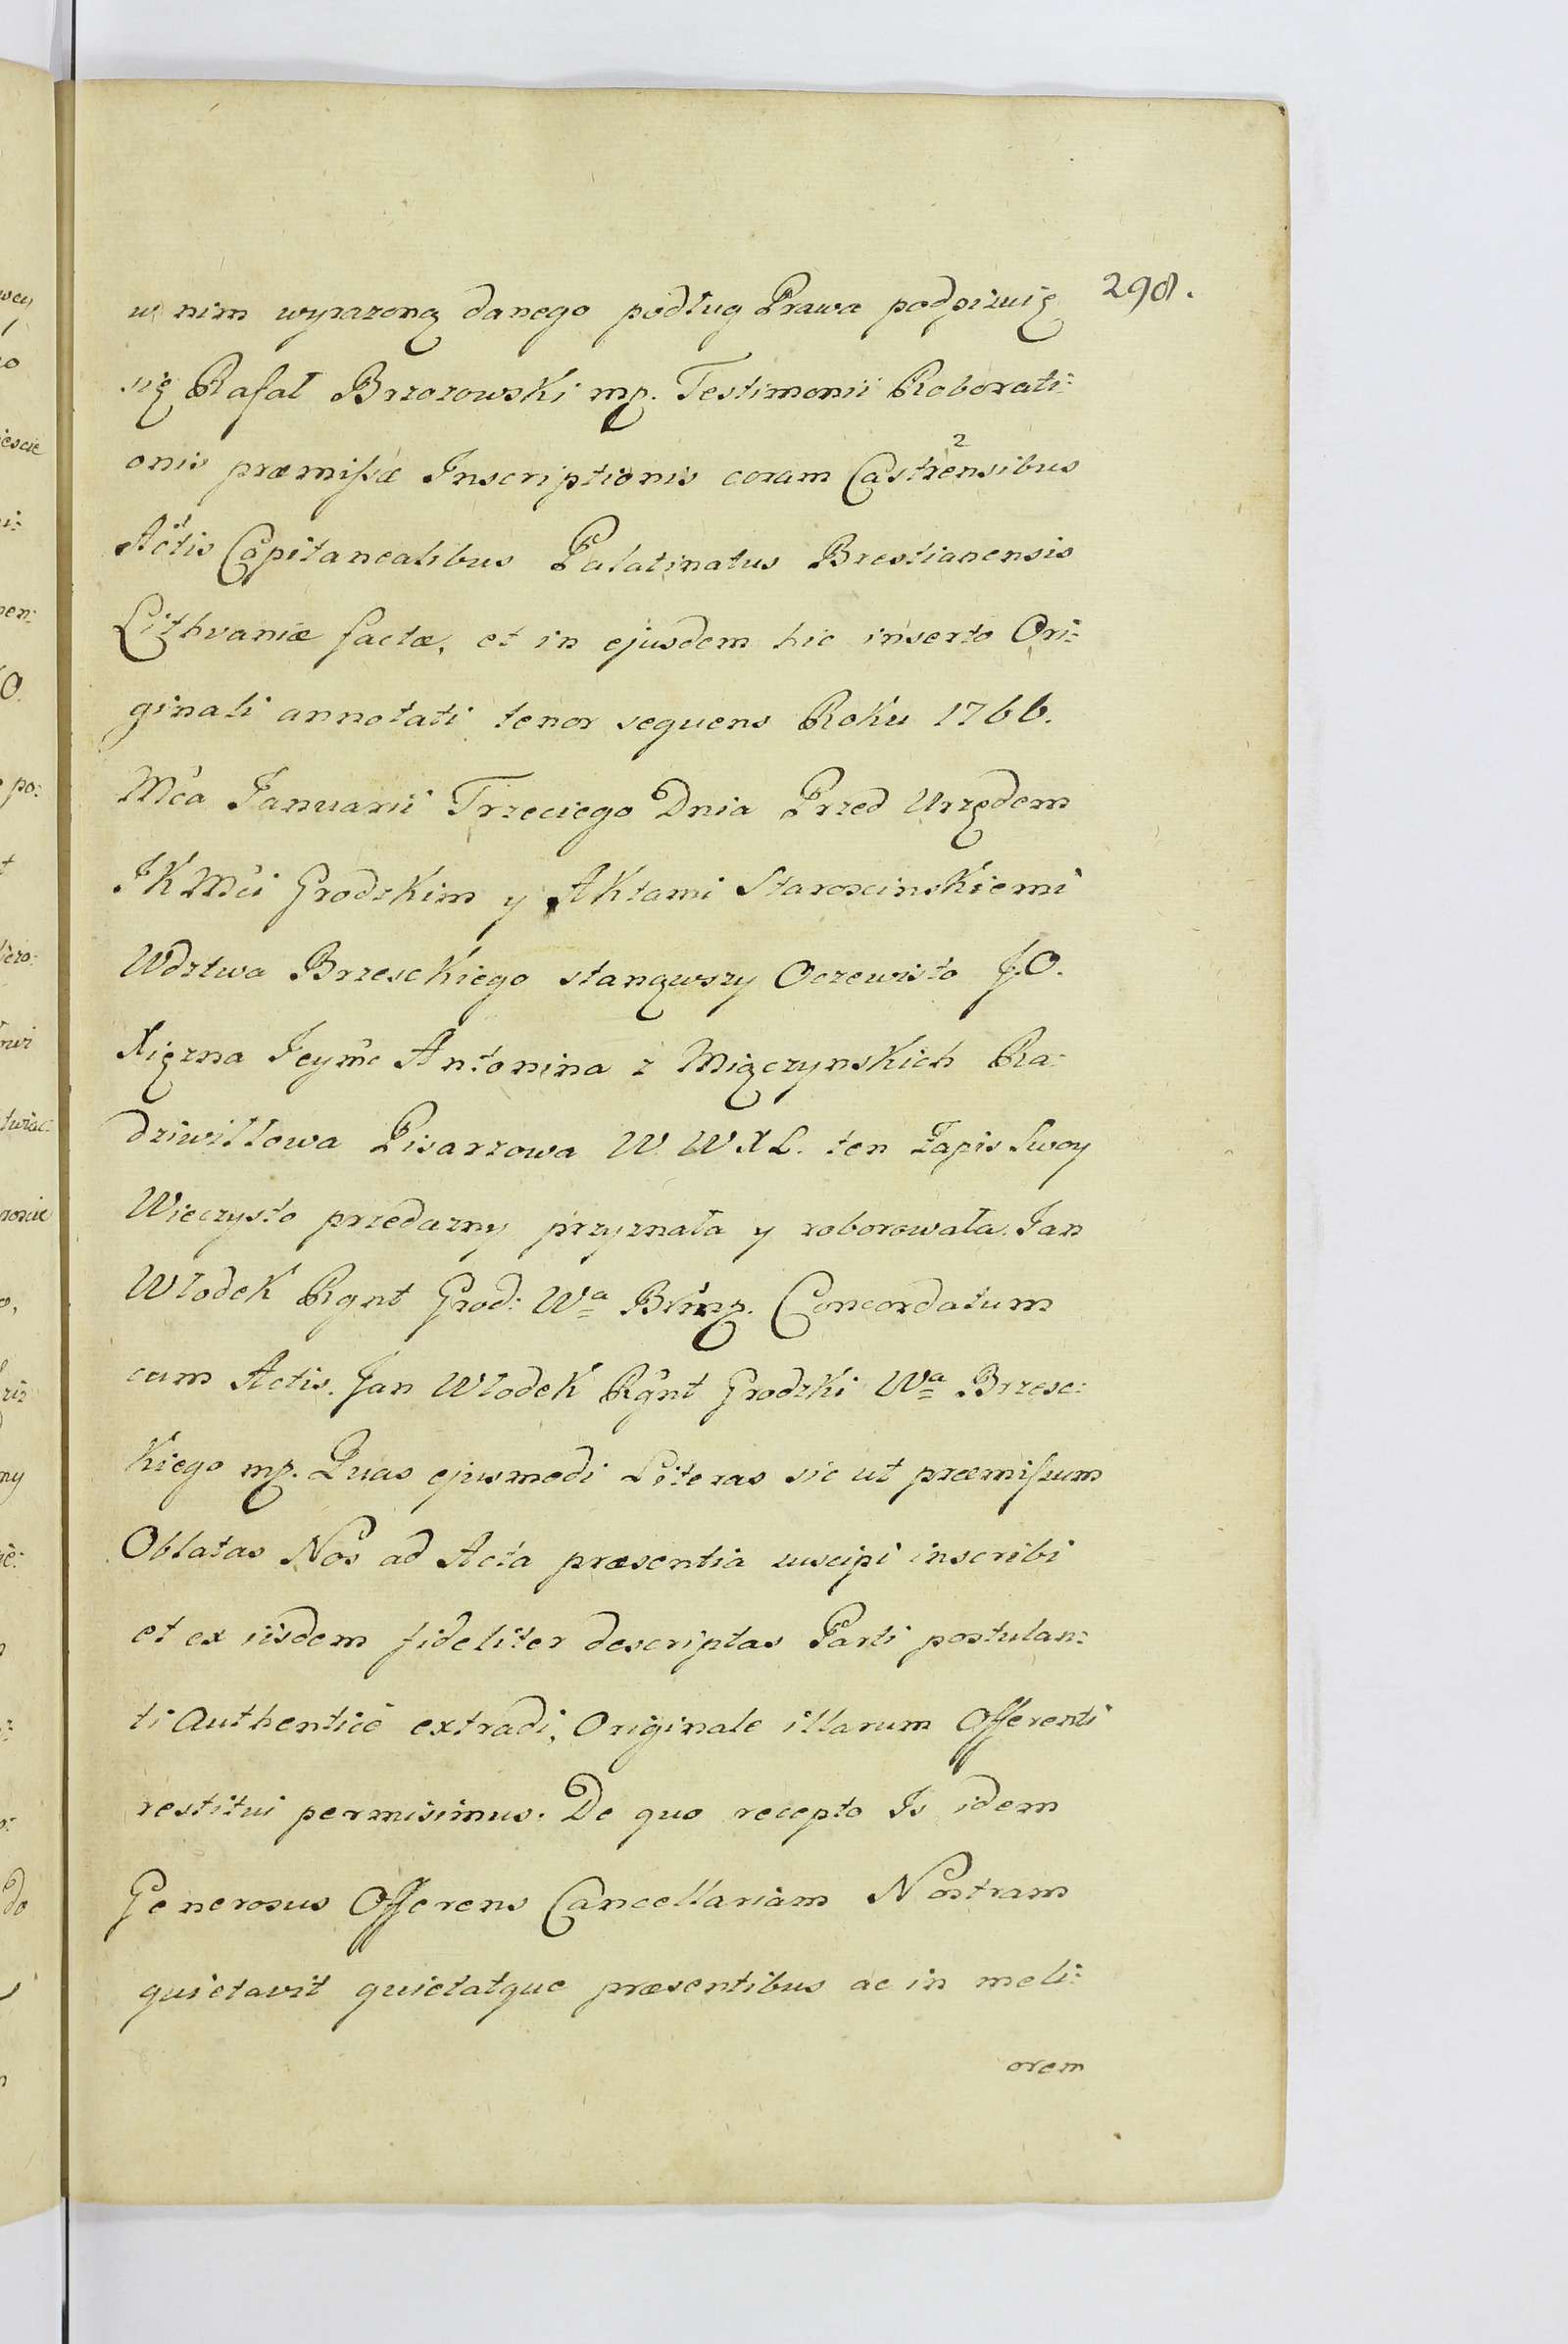 298.
w nim wyrazoną danego podług Prawa podpisuię
się Rafał Brzozowski mp. Testimonii Roborati:
onis præmissæ Inscriptionis coram Castrensibus 2
Actis 1 Capitanealibus Palatinatus Brestianensis
Lithvaniæ factæ, et in ejusdem hic inserto Ori:
ginali annotati tenor sequens Roku 1766.
Mca Januarii Trzeciego Dnia Przed Urzędem
JKMci Grodzkim y Aktami Staroscinskiemi
Wdztwa Brzesckiego stanąwszy Oczewisto J.O.
Xięzna Jeymc Antonina z Miączynskich Ra:
dziwiłłowa Pisarzowa W. WXL. ten Zapis Swoy
Wieczysto przedazny przyznała y roborowała. Jan
Włodek Rgnt Grod: Wa Br: mp. Concordatum
cum Actis. Jan Włodek Rgnt Grodzki Wa Brzesc:
kiego mp. Quas ejusmodi Literas sic ut præmissum
Oblatas Nos ad Acta præsentia suscipi inscribi
et ex iisdem fideliter descriptas Parti postulan:
ti Authentice extradi, Originale illarum Offerenti
restitui permisimus. De quo recepto Is idem
Generosus Offerens Cancellariam Nostram
quietavit quietatque præsentibus ac in meli:
orem